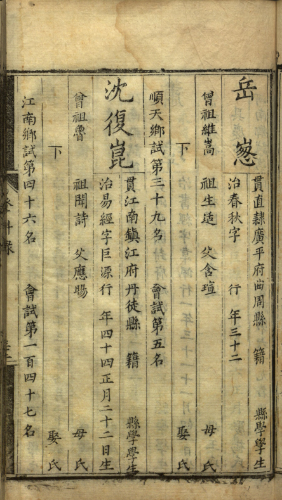 岳
貫直隸廣平府曲周縣 籍 縣學學生
治春秋字 行 年三十二
曾祖維嵩 祖生适 父含瑄 母氏
下 娶氏
順天鄉試第三十九名 會試第五名
沈復崑
貫江南鎮江府丹徒縣 籍 縣學學生
治易經字巨源行 年四十四正月二十二日生
曾祖魯 祖聞詩 父應暘 母氏
下 娶氏
江南鄉試第四十六名 會試第一百四十七名
科錄